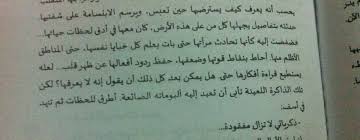 بحسب أنه يعرف كيف يسترضيها حين تعبس، ويرسم الابتسامة على شفتيها
حدثته بتفاصيل يجهلها كل من على هذه الأرض، كان معها في أدق لحظات حياتها...
فضفضت إليه كأنها تحادث مرآتها حتى بات يعلم كل خبايا نفسها، حتى المناطق
الأظلم منها. أحاط بنقاط قوتها وضعفها، حفظ ردود أفعالها عن ظهر قلب... لعله
يستطيع قراءة أفكارها حتى هل يمكن بعد كل ذلك أن يقول إنه لا يعرفها؟ لكن
تلك الذاكرة اللعينة تأبى أن تعيد إليه ألبوماته الضائعة. أطرق للحظات ثم تنهد
في أسف:
- ذكرياتي لا تزال مفقودة...